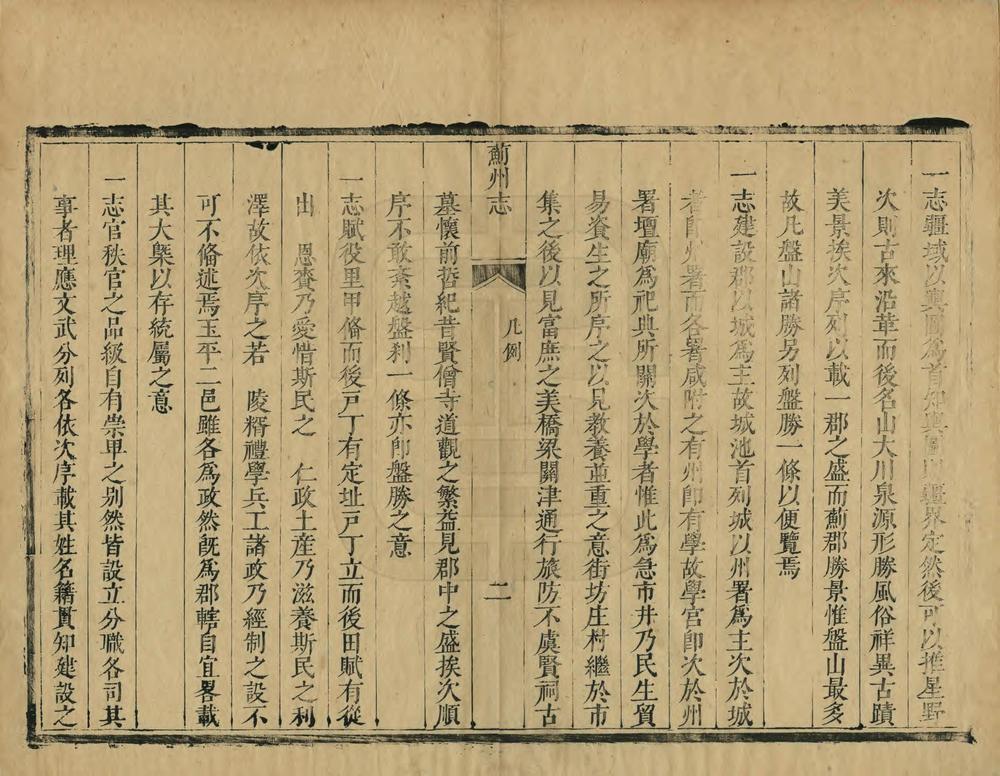 一志疆域以輿圖為首知輿圖則疆界定然後可以推星野
次則古來沿革而後名山大川泉源形勝風俗祥異古蹟
美景挨次序列以載一郡之盛而薊郡勝景惟盤山最多
故凡盤山諸勝另列盤勝一條以便覽焉
一志建設郡以城為主故城池首列城以州署為主次於城
者卽州署而各署咸附之有州卽有學故學宮卽次於州
署壇廟為祀典所關次於學者惟此為急市井乃民生貿
易資生之所序之以見教養並重之意街坊庄村繼於市
集之後以見富庶之美橋梁關津通行旅防不虞賢祠古
薊州志
凡例
二
墓懷前哲紀昔賢僧寺道觀之繁益見郡中之盛挨次順
序不敢紊越盤刹一條亦卽盤勝之意
一志賦役里甲俻而後戸丁有定址戸丁立而後田賦有從
出 恩賚乃愛惜斯民之 仁政土産乃滋養斯民之利
澤故依次序之若 陵糈禮學兵工諸政乃經制之設不
可不俻述焉玉平二邑雖各為政然旣為郡轄自宜畧載
其大槩以存統屬之意
一志官秩官之品級自有崇卑之别然皆設立分職各司其
事者理應文武分列各依次序載其姓名籍貫知建設之